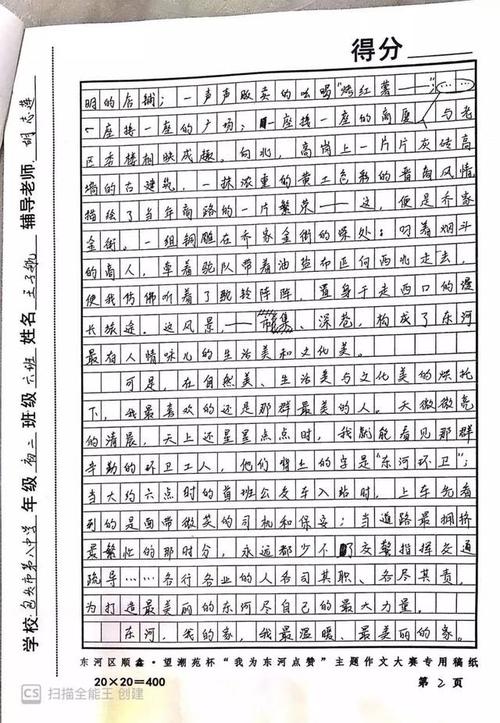 得分
明的店铺；一声声贩卖的吆喝“烤红薯——……”
一座接一座的广场；一座接一座的高厦，与老
区李楼相映成趣。向北，高岗上一片片灰砖高
墙的古建筑，一抹浓重的黄土色彩的晋商风情
描绘了当年商路的一片繁荣——这，便是乔家
金街。一组铜雕在乔家金街的深处：叼着烟斗
的商人，牵着驼队带着油盐布匹向西北走去，
使我仿佛听着了驼铃阵阵，置身于走西口的漫
长旅途。这风景，——市集、深巷，构成了东河
最有人情味儿的生活美和文化美。
可是，在自然美、生活美与文化美的烘托
下，我最喜欢的还是那群最美的人。天微微亮
的清晨，天上还星星点点时，我就能看见那群
辛勤的环卫工人，他们背上的字是“东河环卫”；
当大约六点时的首班公交车入站时，上车先看
到的是面带微笑的司机和保安；当道路最拥挤
最繁忙的那时分，永远都少不了交警指挥交通
疏导……各行各业的人各司其职、各尽其责，
为打造最美丽的东河尽自己的最大力量。
东河，我的家，我最温暖、最美丽的家。
东河区顺鑫·望潮苑杯“我为东河点赞”主题作文大赛专用稿纸
20×20=400
第2页
学校 包头市第八中学 年级 初二 班级 六班 姓名 王子毓 辅导老师 胡志莲
CS 扫描全能王 创建